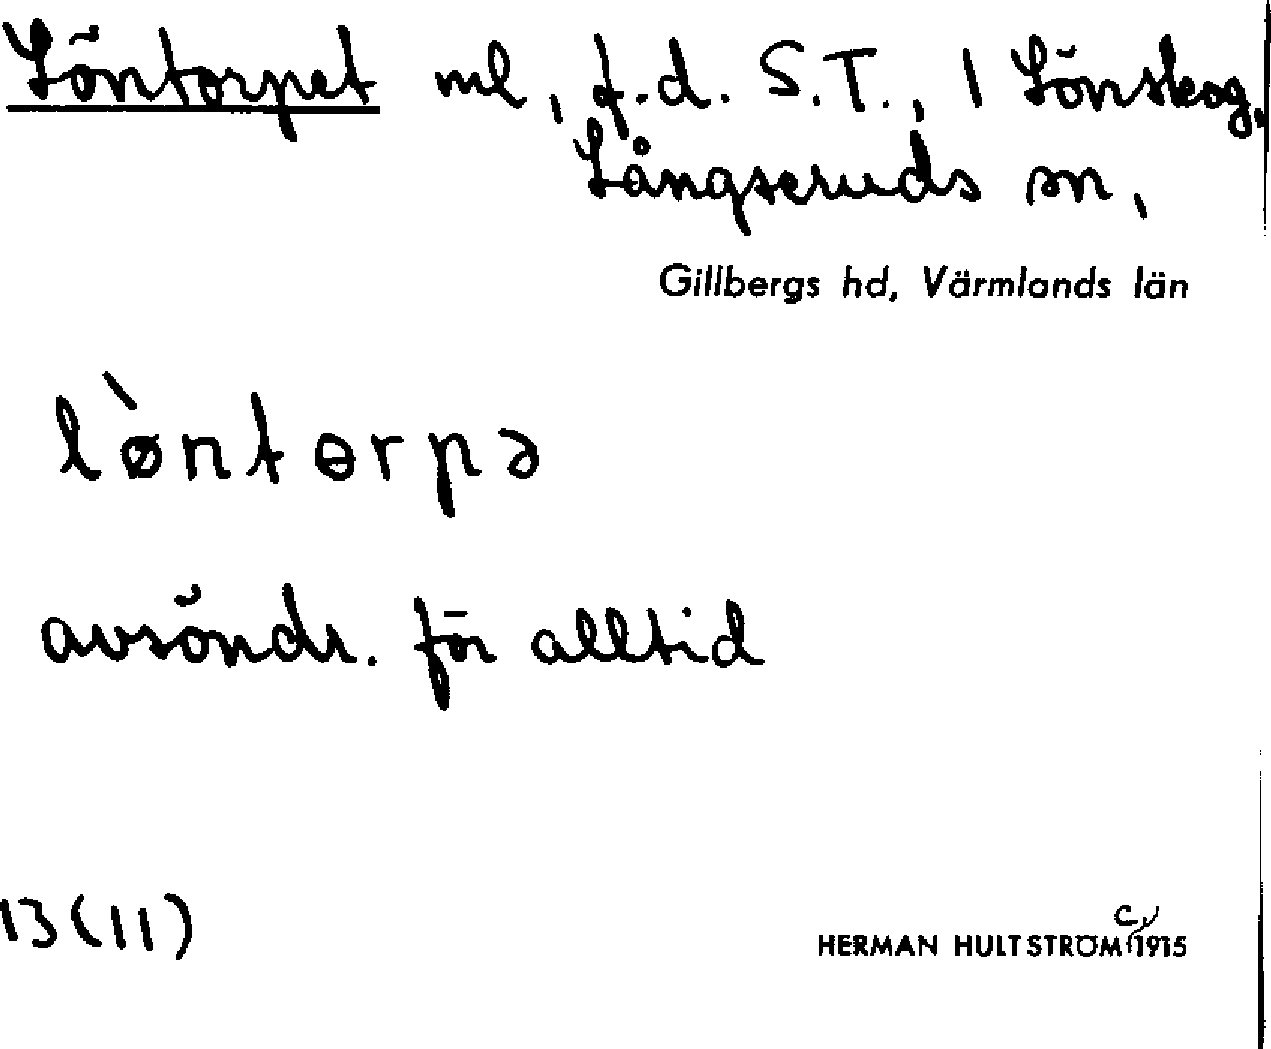 Löntorpet ml, f.d. S.T., 1 Lönskog,
Långseruds sn,
Gillbergs hd, Värmlands län
lø̀ntɵrpə
avsöndr. för alltid
13(11)
c
HERMAN HULTSTRÖM 1915